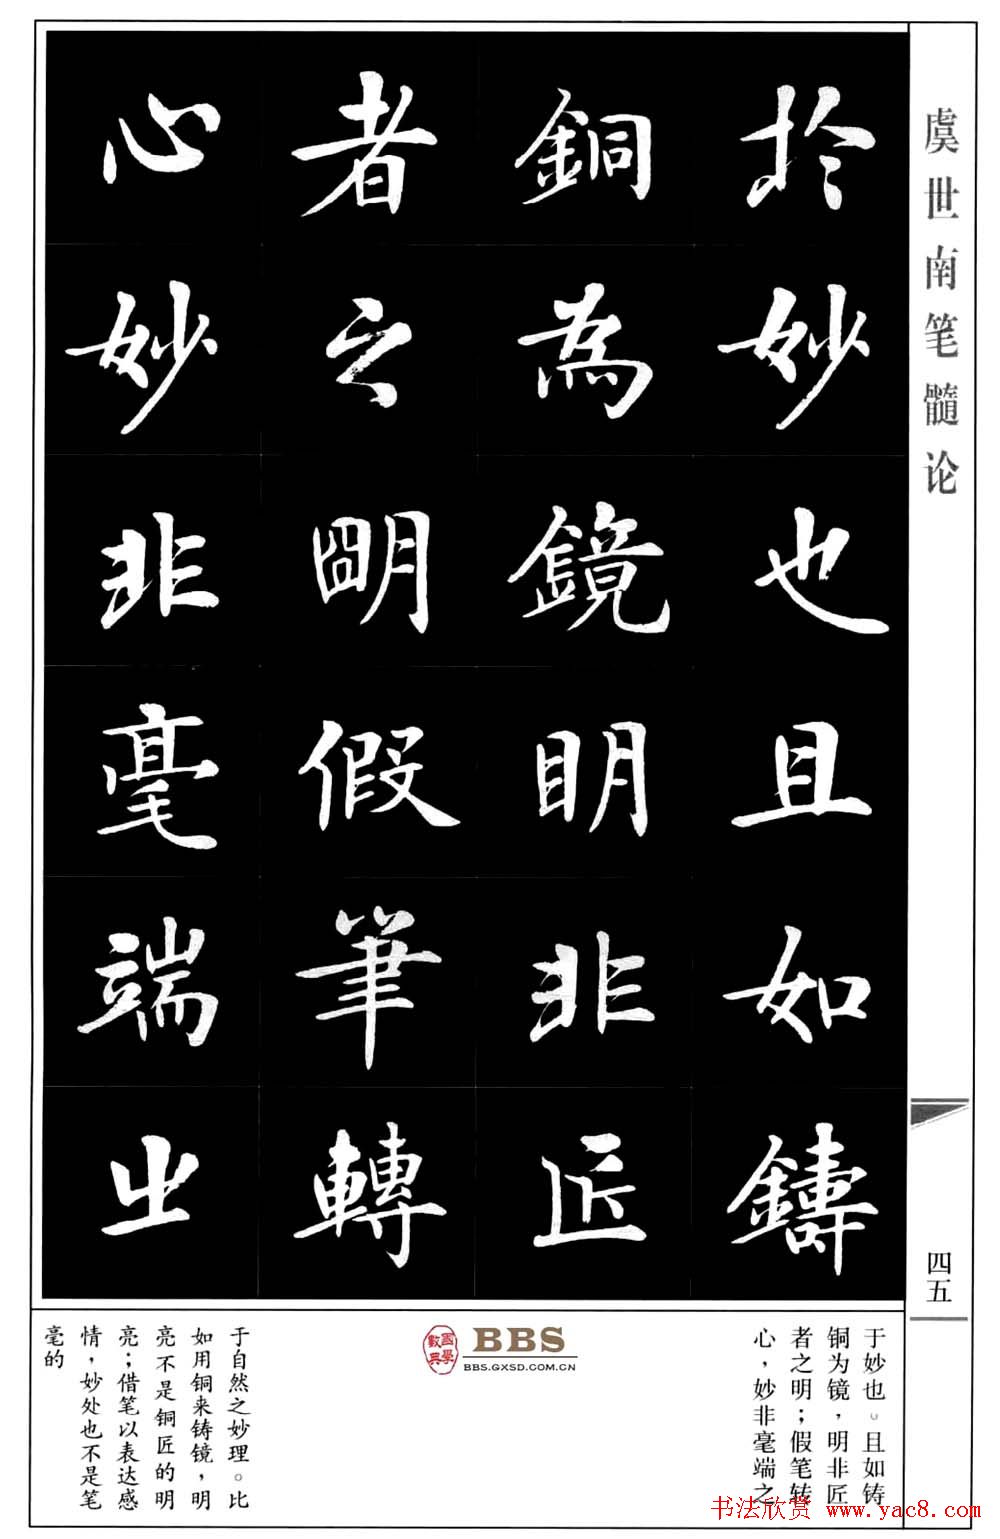 虞世南笔髓论
四五
於妙也且如鑄
銅為鏡明非匠
者之明假筆轉
心妙非毫端之
于妙也。且如铸
铜为镜，明非匠
者之明；假笔转
心，妙非毫端之
國學
數典
BBS
BBS.GXSD.COM.CN
于自然之妙理。比
如用铜来铸镜，明
亮不是铜匠的明
亮；借笔以表达感
情，妙处也不是笔
毫的
书法欣赏 www.yac8.com